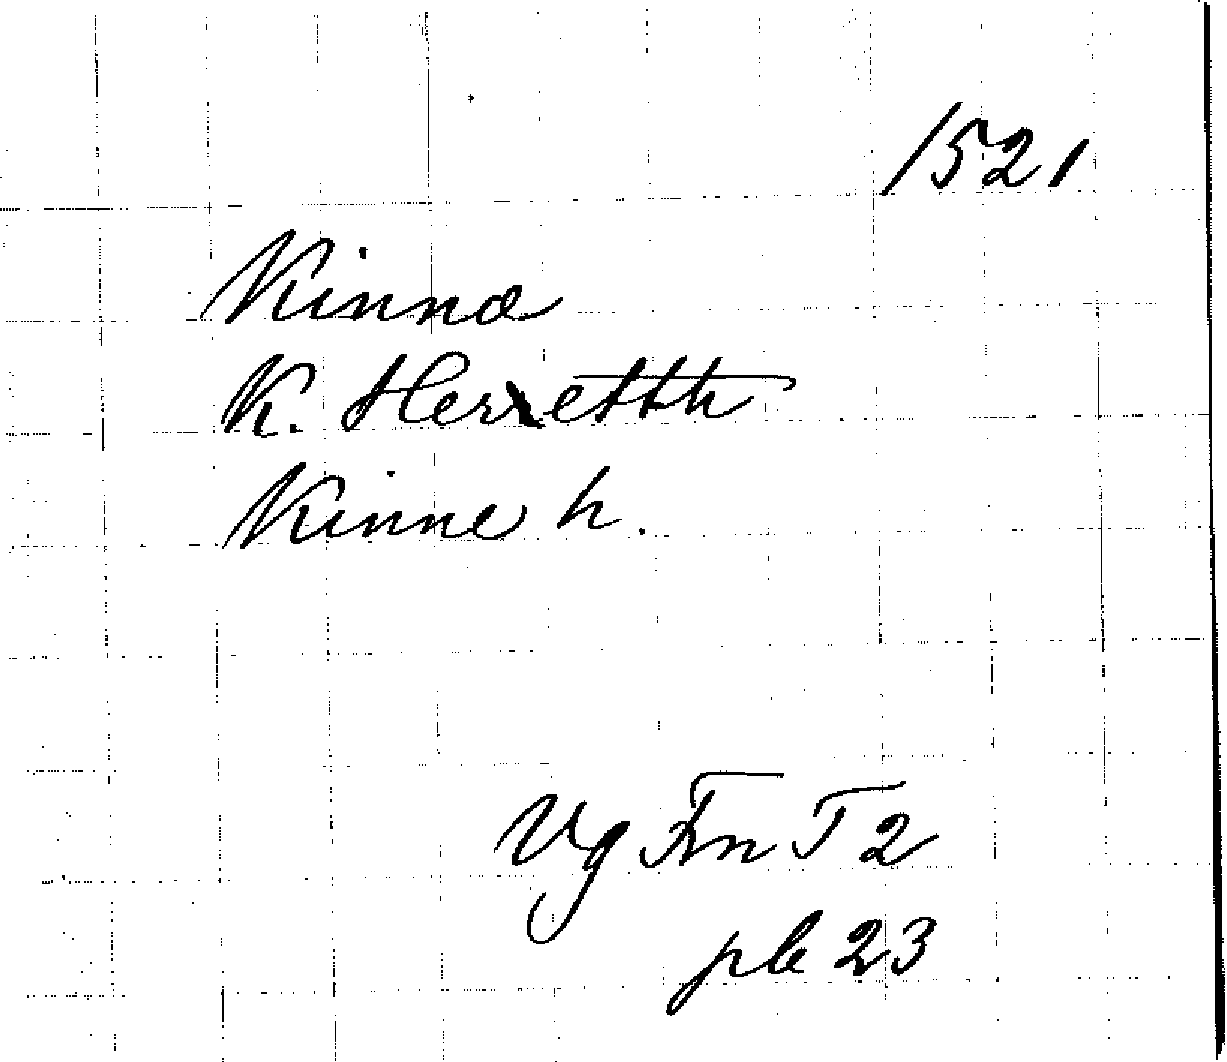 1521
Kinna
K. Herretth
Kinne h.
Vg Fm T 2
pb 23